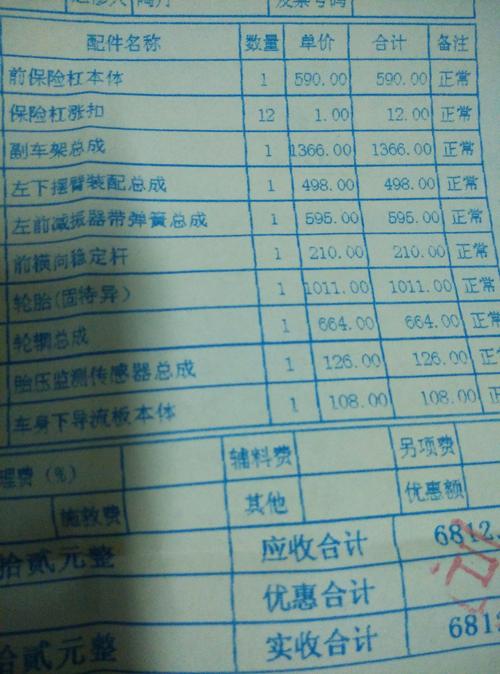 配件名称 数量 单价 合计 备注
前保险杠本体 1 590.00 590.00 正常
保险杠涨扣 12 1.00 12.00 正常
副车架总成 1 1366.00 1366.00 正常
左下摆臂装配总成 1 498.00 498.00 正常
左前减振器带弹簧总成 1 595.00 595.00 正常
前横向稳定杆 1 210.00 210.00 正常
轮胎(固特异) 1 1011.00 1011.00 正常
轮辋总成 1 664.00 664.00 正常
胎压监测传感器总成 1 126.00 126.00 正常
车身下导流板本体 1 108.00 108.00 正
理费(%) 辅料费 另项费
施救费 其他 优惠额
拾贰元整 应收合计 6812.
优惠合计
拾贰元整 实收合计 681